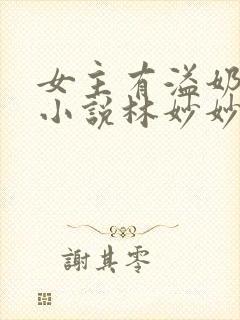 女主有溢奶
小说林妙妙
謝其零